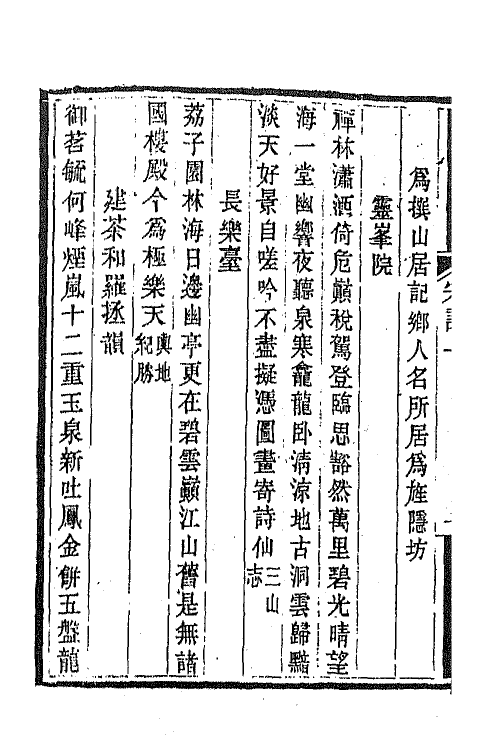 為撰山居記鄉人名所居為旌隱坊
靈峯院
禪林瀟洒倚危巔稅駕登臨思豁然萬里碧光晴望
海一堂幽響夜聽泉寒龕龍臥清涼地古洞雲歸黯
淡天好景自嗟吟不盡擬憑圖畫寄詩仙三山志
長樂臺
荔子園林海日邊幽亭更在碧雲巔江山舊是無諸
國樓殿今為極樂天輿地紀勝
建茶和羅拯韻
御茗毓何峰煙嵐十二重玉泉新吐鳳金餅五盤龍